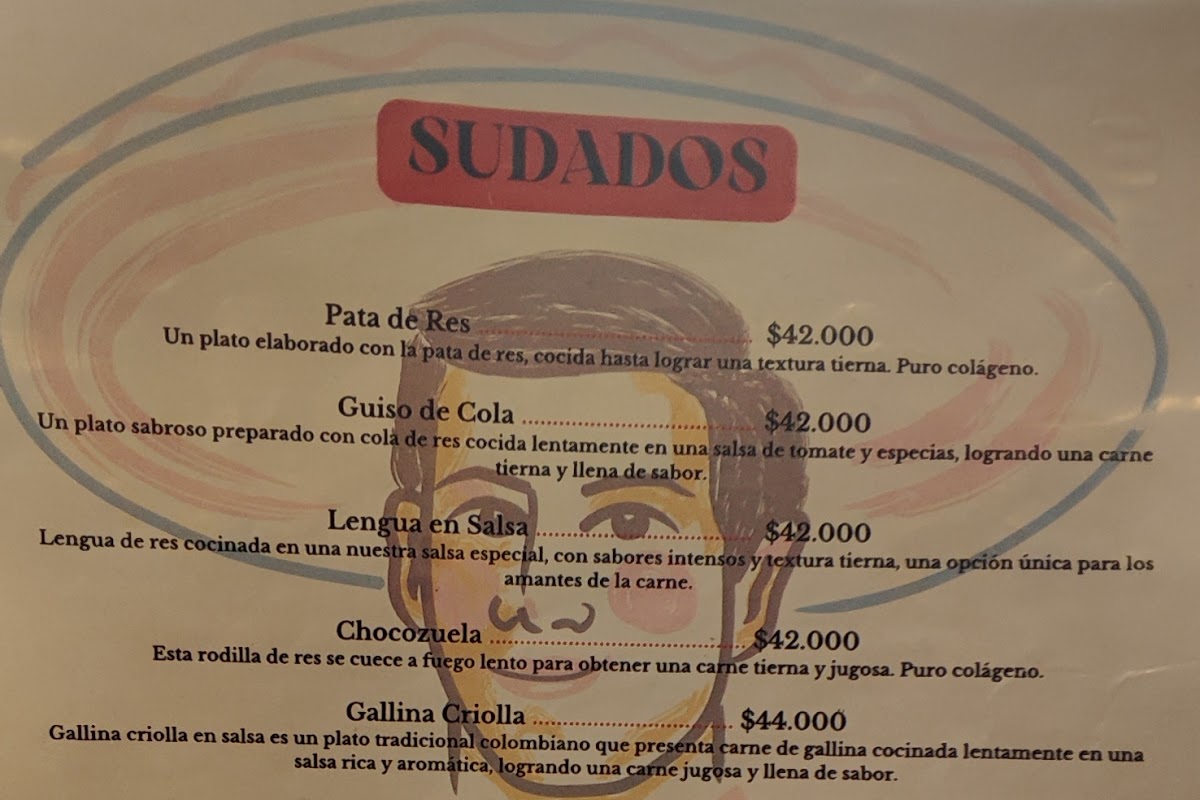 SUDADOS
Pata de Res ........................ $42.000
Un plato elaborado con la pata de res, cocida hasta lograr una textura tierna. Puro colágeno.
Guiso de Cola ........................ $42.000
Un plato sabroso preparado con cola de res cocida lentamente en una salsa de tomate y especias, logrando una carne
tierna y llena de sabor.
Lengua en Salsa ........................ $42.000
Lengua de res cocinada en una nuestra salsa especial, con sabores intensos y textura tierna, una opción única para los
amantes de la carne.
Chocozuela ........................ $42.000
Esta rodilla de res se cuece a fuego lento para obtener una carne tierna y jugosa. Puro colágeno.
Gallina Criolla ........................ $44.000
Gallina criolla en salsa es un plato tradicional colombiano que presenta carne de gallina cocinada lentamente en una
salsa rica y aromática, logrando una carne jugosa y llena de sabor.